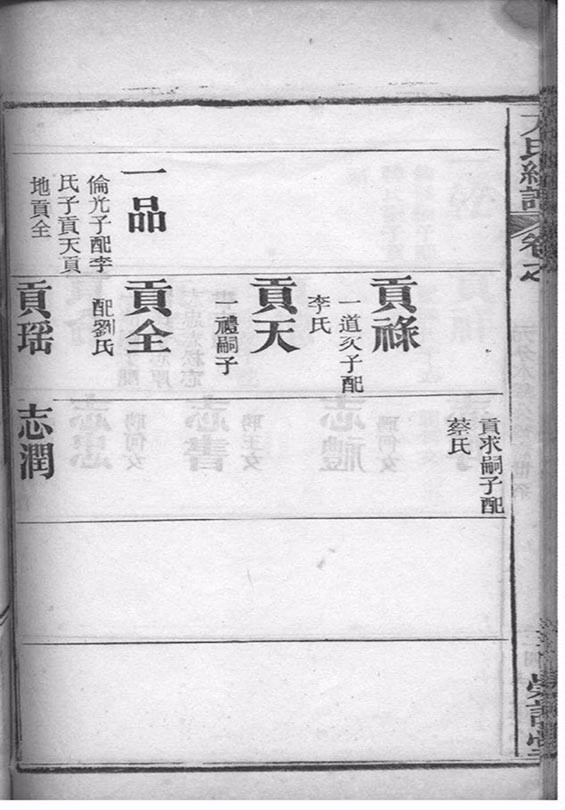 卷之
一品
倫光子配李
氏子貢天貢
地貢全
貢祿
一道次子配
李氏
貢天
一禮嗣子
貢全
配劉氏
貢瑶
貢求嗣子配
蔡氏
志潤